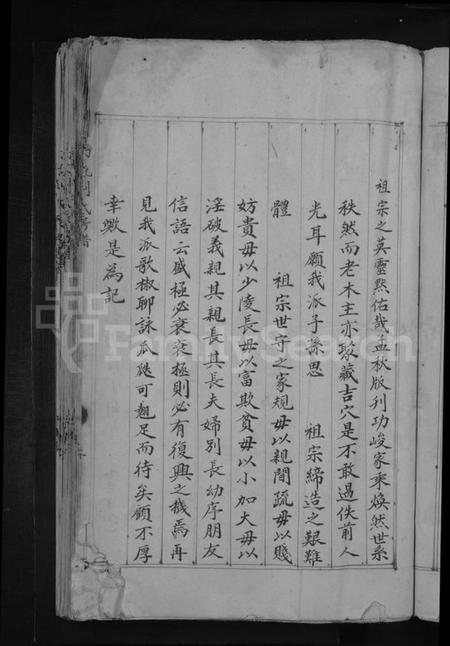 祖宗之英靈黙佑哉孟秋版刊功峻家乘煥然世系
秩然而老木主亦聚藏吉穴是不敢過佚前人
光耳願我派子孫思 祖宗締造之艱難
體 祖宗世守之家規毋以親間疏毋以賤
妨貴毋以少陵長毋以富欺貧毋以小加大毋以
淫破義親其親長其長夫婦別長幼序朋友
信語云盛極必衰衰極則必有復興之機焉再
見我派歌椒聊詠瓜瓞可翹足而待矣顧不厚
幸歟是為記
FamilySearch